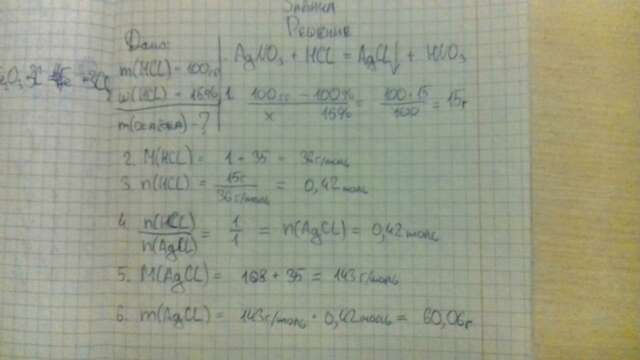 Задача
Решение
Дано:
AgNO₃ + HCL = AgCL↓ + HNO₃
m(HCL) - 100г
w(HCL) - 15%
m(осадка) - ?
1. 100г - 100% / x 15% = 100·15 / 100 = 15г
2. M(HCL) = 1 + 35 = 36г/моль
3. n(HCL) = 15г / 36г/моль = 0,42моль
4. n(HCL) / n(AgCL) = 1/1 = n(AgCL) = 0,42моль
5. M(AgCL) = 108 + 35 = 143г/моль
6. m(AgCL) = 143г/моль · 0,42моль = 60,06г